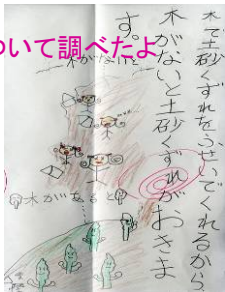 ついて調べたよ
木で土砂くずれをふせいでくれるから、
木がないと土砂くずれがおきま
す。
木がないと
木があると